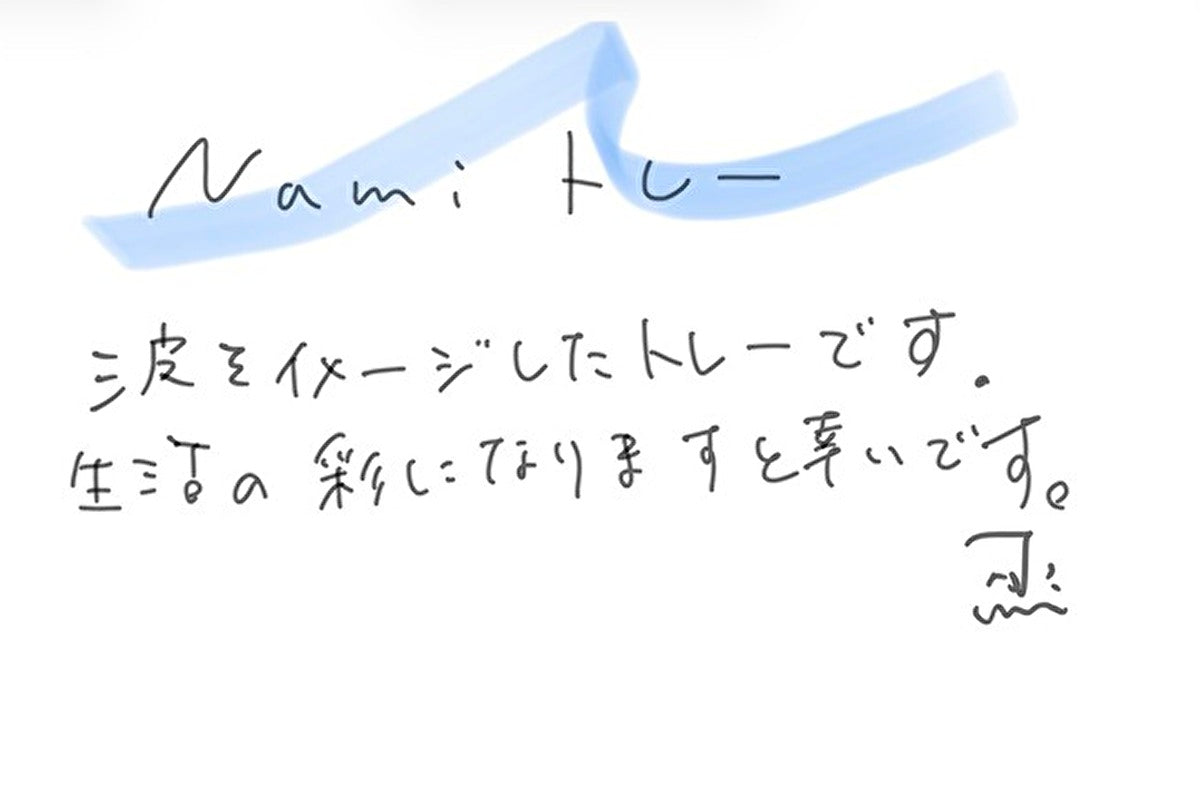 Nami トレー
波をイメージしたトレーです.
生活の彩になりますと幸いです。